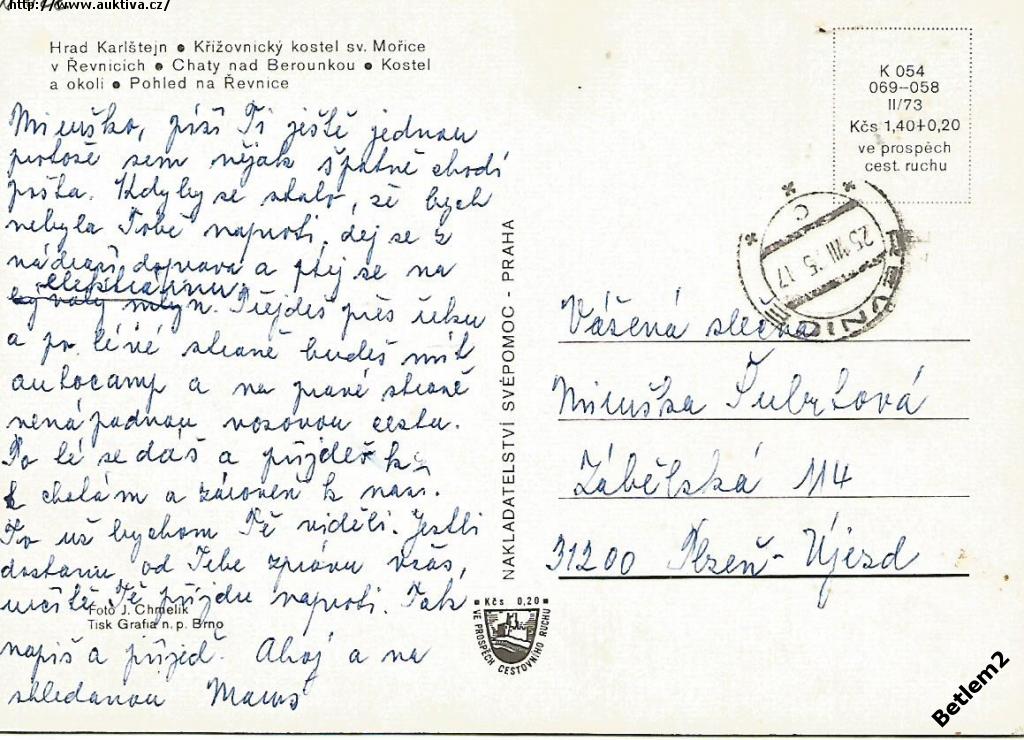 http://www.auktiva.cz/
Hrad Karlštejn • Křižovnický kostel sv. Mořice
v Řevnicích • Chaty nad Berounkou • Kostel
a okolí • Pohled na Řevnice
Miruško, píši Ti ještě jednou
protože sem nějak špatně chodí
pošta. Kdyby se stalo, že bych
nebyla Tobě naproti, dej se z
nádraží doprava a ptej se na
elektrárnu
bývalý mlýn. Přejdeš přes řeku
a po lévé straně budeš mít
autocamp a na pravé straně
nenápadnou vozovou cestu.
Po té se dáš a přijdeš k
k chatám a zároveň k nám.
To už bychom Tě viděli. Jestli
dostanu od Tebe zprávu včas,
určitě Tě přijdu naproti. Tak
napiš a přijeď. Ahoj a na
shledanou
Foto J. Chmelík
Tisk Grafia n. p. Brno
NAKLADATELSTVÍ SVÉPOMOC - PRAHA
Kčs 0,20
VE PROSPĚCH CESTOVNÍHO RUCHU
K 054
069—058
II/73
Kčs 1,40+0,20
ve prospěch
cest. ruchu
ŘEVNICE
25.VIII.75.17
C
Vážená slečna
Miruška Šubrtová
Zábělská 114
31200 Plzeň-Újezd
Betlem2